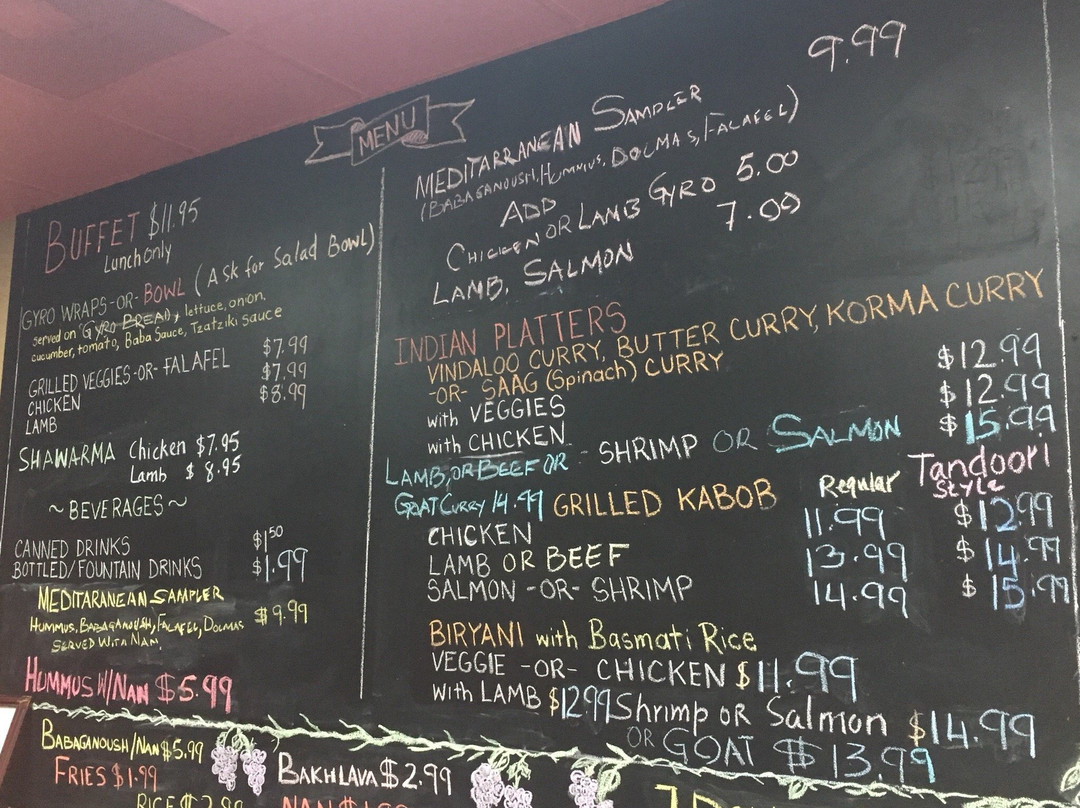 MENU
BUFFET $11.95
Lunch Only
GYRO WRAPS -OR- BOWL (Ask for Salad Bowl)
served on GYRO BREAD, lettuce, onion,
cucumber, tomato, Baba Sauce, Tzatziki sauce
GRILLED VEGGIES -OR- FALAFEL $7.99
CHICKEN $7.99
LAMB $8.99
SHAWARMA Chicken $7.95
Lamb $8.95
~BEVERAGES~
CANNED DRINKS $1.50
BOTTLED/FOUNTAIN DRINKS $1.99
MEDITARANEAN SAMPLER
HUMMUS, BABAGANOUSH, FALAFEL, DOLMAS $9.99
SERVED WITH NAN.
HUMMUS W/NAN $5.99
BABAGANOUSH/NAN $5.99
FRIES $1.99
RICE $2.99
BAKHLAVA $2.99
9.99
MEDITARRANEAN SAMPLER
(BABAGANOUSH, HUMMUS, DOLMAS, FALAFEL)
ADD
CHICKEN OR LAMB GYRO 5.00
LAMB, SALMON 7.00
INDIAN PLATTERS
VINDALOO CURRY, BUTTER CURRY, KORMA CURRY
-OR- SAAG (Spinach) CURRY
with VEGGIES $12.99
with CHICKEN $12.99
LAMB, OR BEEF OR - SHRIMP OR SALMON $15.99
GOAT CURRY 14.99
GRILLED KABOB Regular Tandoori Style
CHICKEN 11.99 $12.99
LAMB OR BEEF 13.99 $14.99
SALMON -OR- SHRIMP 14.99 $15.99
BIRYANI with Basmati Rice
VEGGIE -OR- CHICKEN $11.99
with LAMB $12.99 Shrimp OR Salmon $14.99
OR GOAT $13.99